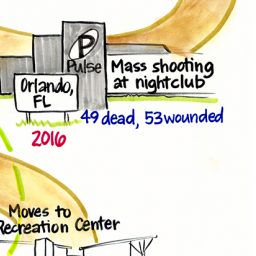 P
Pulse
Mass shooting
at nightclub
Orlando,
FL
49 dead, 53 wounded
2016
Moves to
Recreation Center